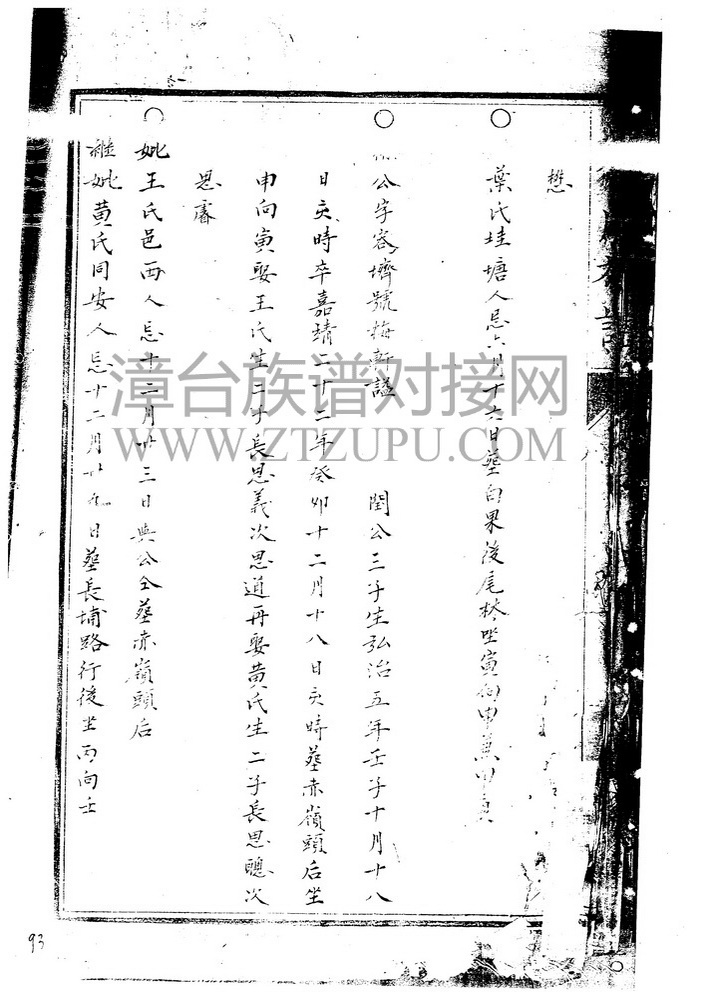 懋
葉氏埭塘人忌六月十六日葬白果後尾林坐寅向申兼甲庚
公字容擠號梅軒謚 閏公三子生弘治五年壬子十月十八
日亥時卒嘉靖二十二年癸卯十二月十八日亥時葬赤嶺頭后坐
申向寅娶王氏生二子長思義次思道再娶黄氏生二子長思聰次
思睿
妣王氏邑西人忌十二月廿三日與公仝葬赤嶺頭后
継妣黄氏同安人忌十二月廿九日葬長埔路行後坐丙向壬
漳台族谱对接网
WWW.ZTZUPU.COM
93